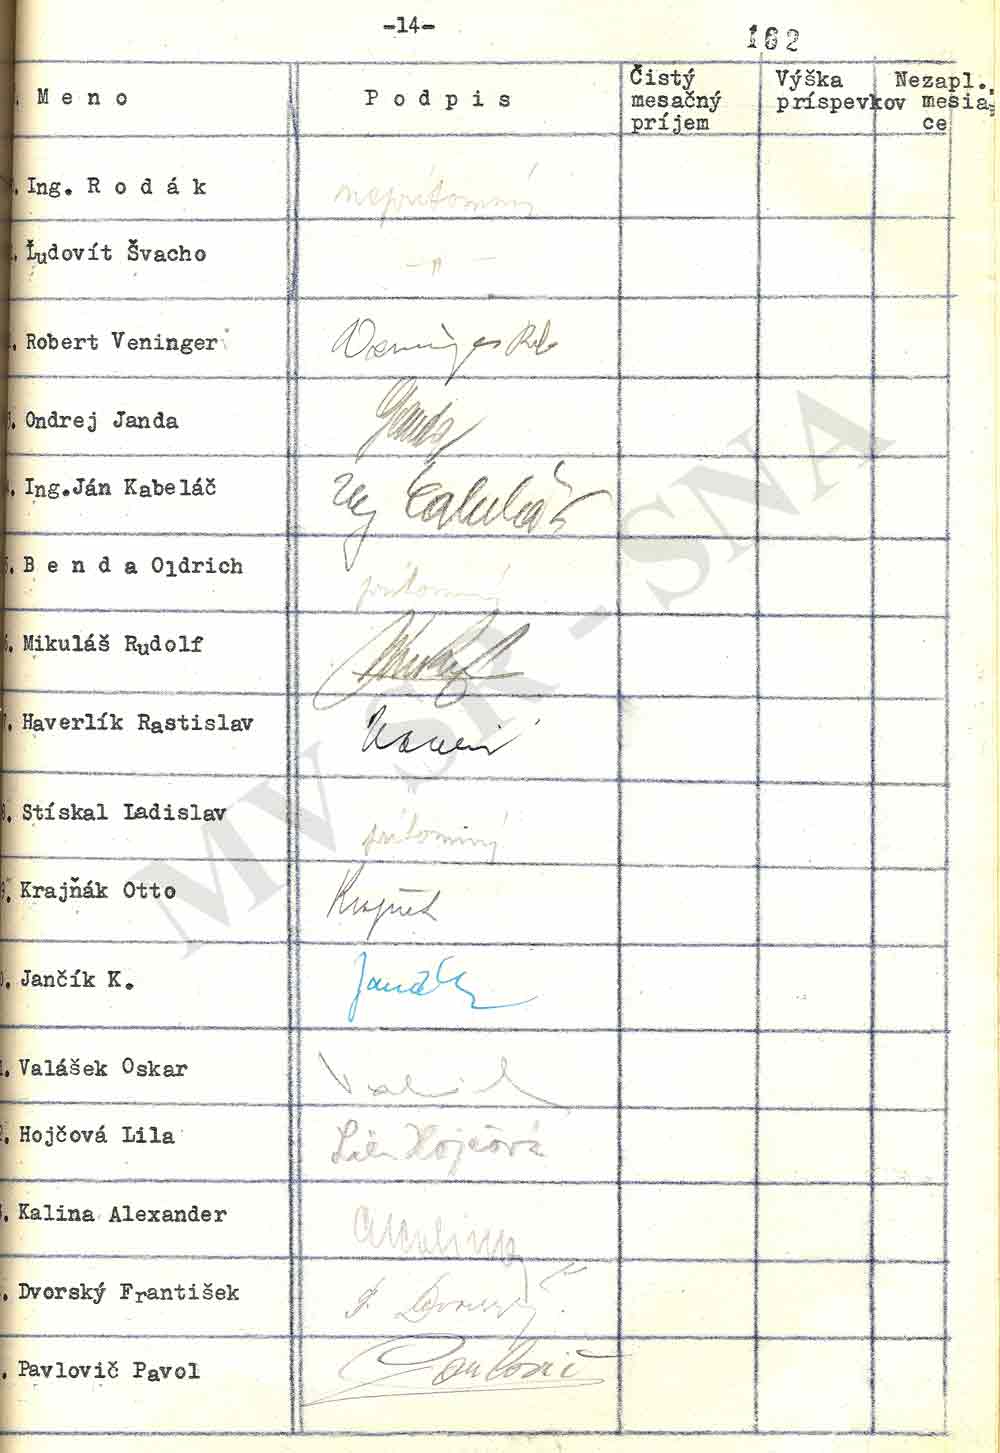 -14-
162
Meno Podpis Čistý mesačný príjem Výška príspevkov Nezapl. mesiace
Ing. Rodák neprítomný
Ľudovít Švacho - " -
Robert Veninger Veninger Rob
Ondrej Janda Janda
Ing.Ján Kabeláč Ing Kabeláč
Benda Oldrich prítomný
Mikuláš Rudolf
Haverlík Rastislav
Stískal Ladislav prítomný
Krajňák Otto Krajňák
Jančík K. Jančík
Valášek Oskar
Hojčová Lila Lila Hojčová
Kalina Alexander A Kalina
Dvorský František F. Dvorský
Pavlovič Pavol Pavlovič
MV SR - SNA